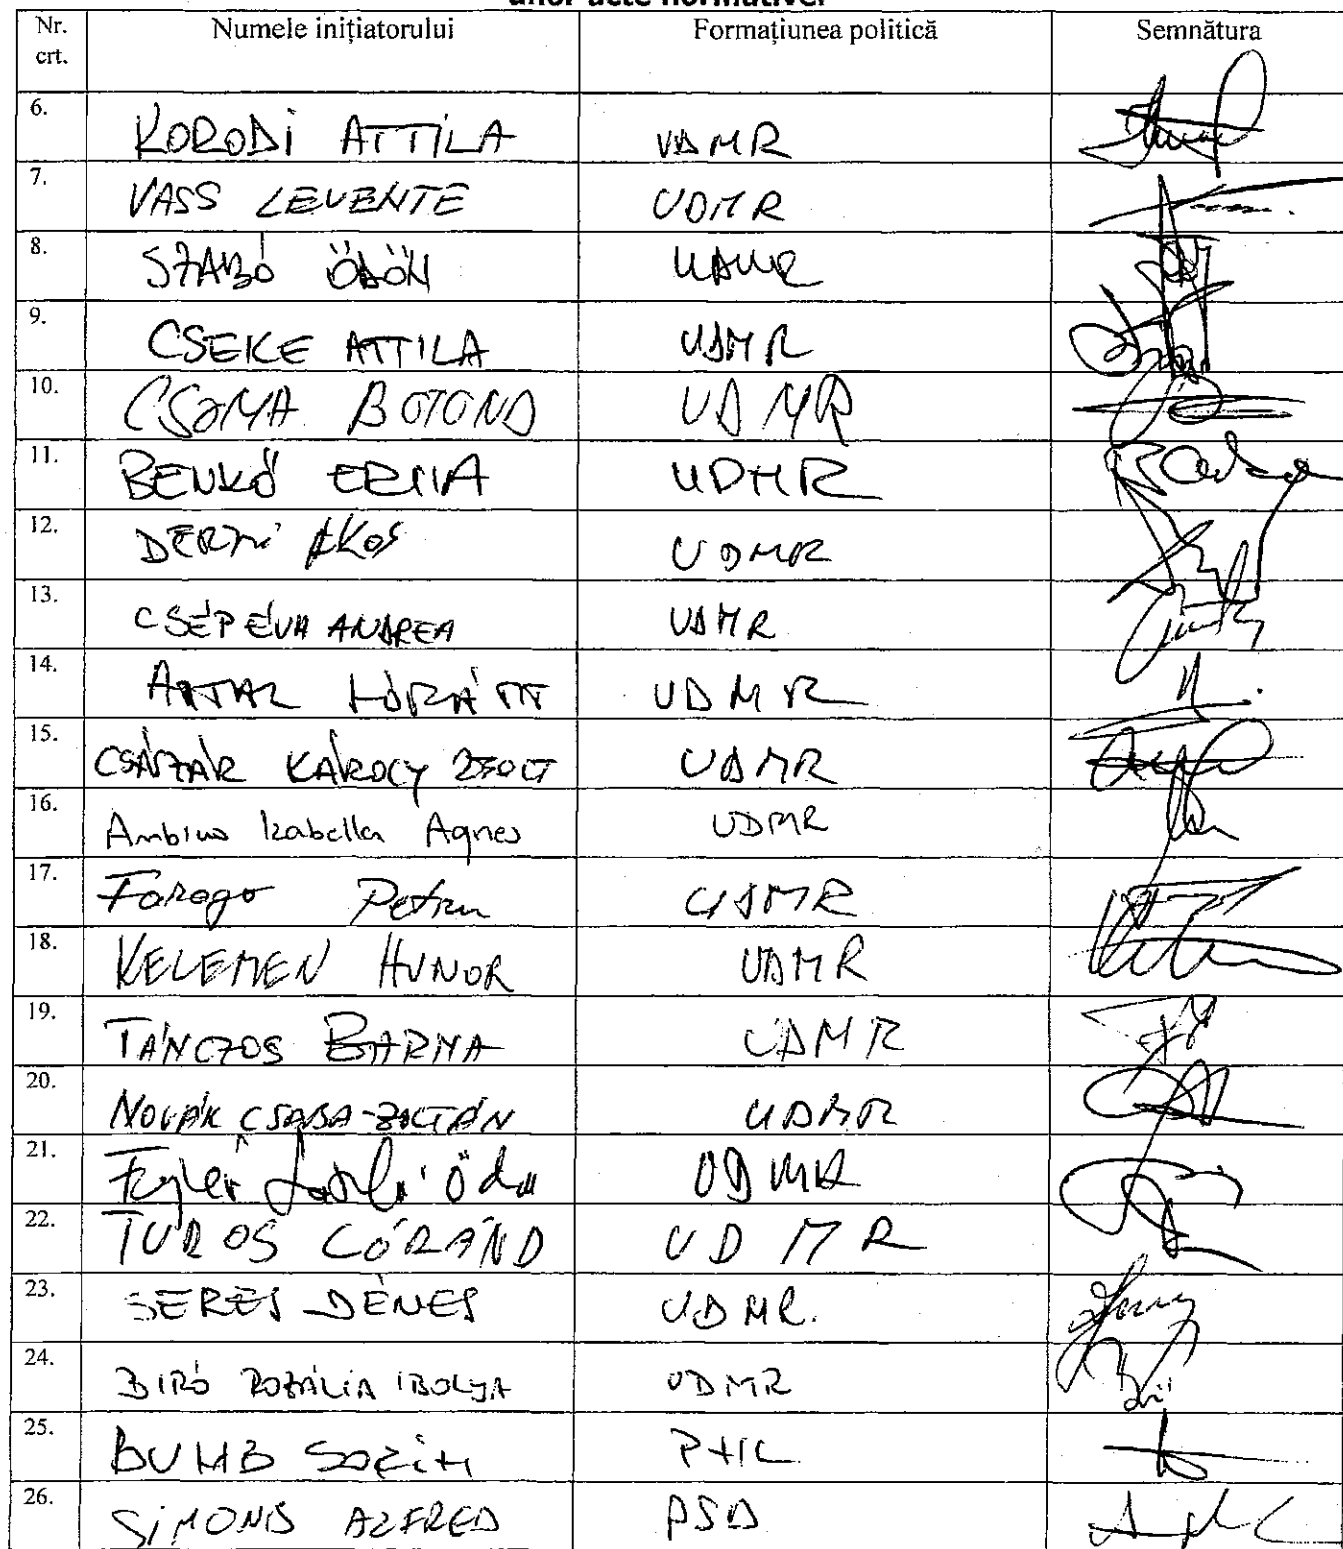 unor acte normative.
Nr. crt. Numele inițiatorului Formațiunea politică Semnătura
6. KORODI ATTILA UDMR
7. VASS LEVENTE UDMR
8. SZABÓ ÖDÖN UDMR
9. CSEKE ATTILA UDMR
10. CSOMA BOTOND UDMR
11. BENKŐ ERIKA UDMR
12. DERZSI ÁKOS UDMR
13. CSÉP ÉVA ANDREA UDMR
14. ANTAL LÓRÁNT UDMR
15. CSÁSZÁR KÁROLY ZSOLT UDMR
16. Ambrus Izabella Agnes UDMR
17. Farago Petru UDMR
18. KELEMEN HUNOR UDMR
19. TÁNCZOS BARNA UDMR
20. NOVÁK CSABA-ZOLTÁN UDMR
21. Fejér László Ödön UDMR
22. TUROS LÓRÁND UDMR
23. SERES DÉNES UDMR.
24. BIRÓ ROZÁLIA IBOLYA UDMR
25. BUMB SORIN
26. SIMONIS ALFRED PSD